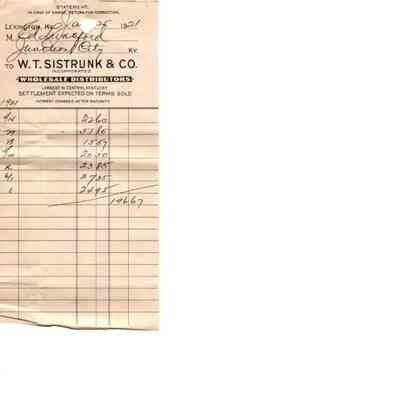 STATEMENT.
IN CASE OF ERROR, RETURN FOR CORRECTION.
LEXINGTON, KY. Jan 25 1921
M Ed Lunceford
Junction City KY.
TO W. T. SISTRUNK & CO.
INCORPORATED
WHOLESALE DISTRIBUTORS
LARGEST IN CENTRAL KENTUCKY
SETTLEMENT EXPECTED ON TERMS SOLD
INTEREST CHARGED AFTER MATURITY
1921
2260
5180
1557
2030
2385
2735
2495
19667